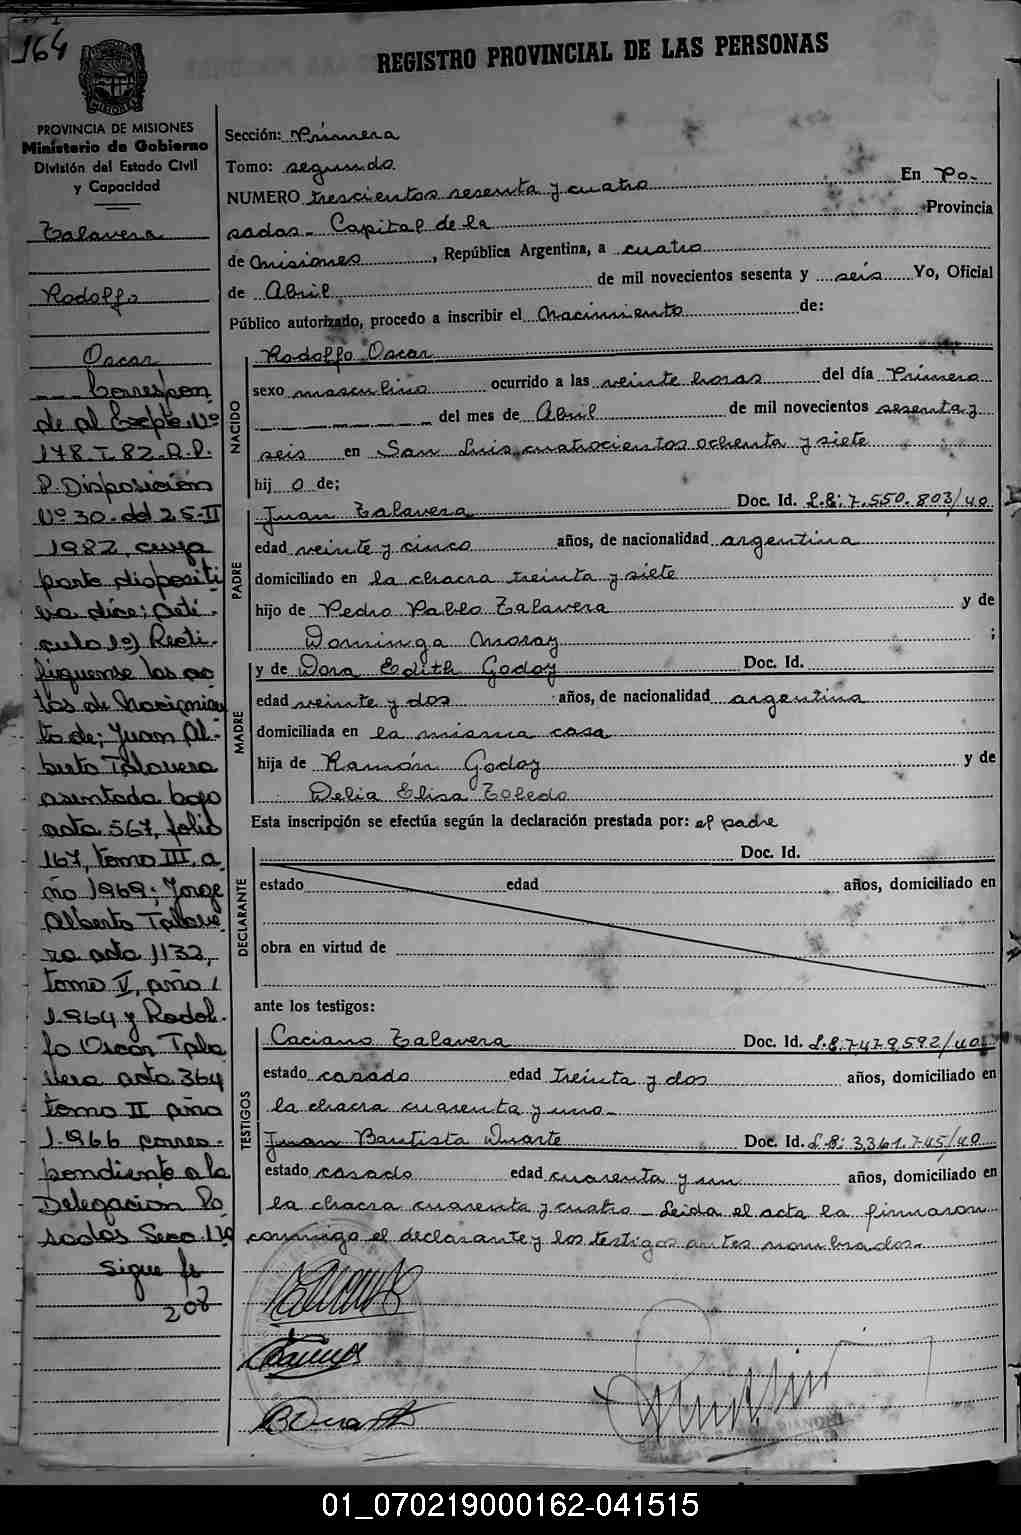 164
REGISTRO PROVINCIAL DE LAS PERSONAS
MISIONES
PROVINCIA DE MISIONES
Ministerio de Gobierno
División del Estado Civil
y Capacidad
Talavera
Rodolfo
Oscar
Correspon
de al Expte. Nº
178-T-82-R.P.
P. Disposición
Nº 30- del 25-II
1982, cuya
parte dispositi
va dice; Artí-
culo 1º) Recti-
fíquense las ac
tas de Nacimien
to de; Juan Al-
berto Talavera
asentada bajo
acta 567, folio
167, tomo III, a
ño 1969; Jorge
Alberto Talave
ra acta 1132,
tomo V, año
1.964 y Rodol-
fo Oscar Tala
vera acta 364
tomo II año
1.966 corres-
pondiente a la
Delegación Po
sadas Secc. 1ra
Sigue fs
208
Sección: Primera
Tomo: segundo.
NUMERO trescientos sesenta y cuatro En Po-
sadas- Capital de la Provincia
de Misiones, República Argentina, a cuatro
de Abril de mil novecientos sesenta y seis Yo, Oficial
Público autorizado, procedo a inscribir el Nacimiento de:
NACIDO
Rodolfo Oscar
sexo masculino ocurrido a las veinte horas del día Primero
del mes de Abril de mil novecientos sesenta y
seis en San Luis cuatrocientos ochenta y siete
hij o de;
PADRE
Juan Talavera Doc. Id. L.E: 7.550.803/40
edad veinte y cinco años, de nacionalidad argentina
domiciliado en la chacra treinta y siete
hijo de Pedro Pablo Talavera y de
Dominga Moray ;
MADRE
y de Dora Edith Godoy Doc. Id.
edad veinte y dos años, de nacionalidad argentina
domiciliada en la misma casa
hija de Ramón Godoy y de
Delia Elisa Toledo
Esta inscripción se efectúa según la declaración prestada por: el padre
DECLARANTE
Doc. Id.
estado edad años, domiciliado en
obra en virtud de
ante los testigos:
TESTIGOS
Caciano Talavera Doc. Id. L.E: 7.479.592/40
estado casado edad treinta y dos años, domiciliado en
la chacra cuarenta y uno-
Juan Bautista Duarte Doc. Id. L.E: 3.361.745/40
estado casado edad cuarenta y un años, domiciliado en
la chacra cuarenta y cuatro- Leida el acta la firmaron
conmigo el declarante y los testigos antes nombrados.-
01_070219000162-041515